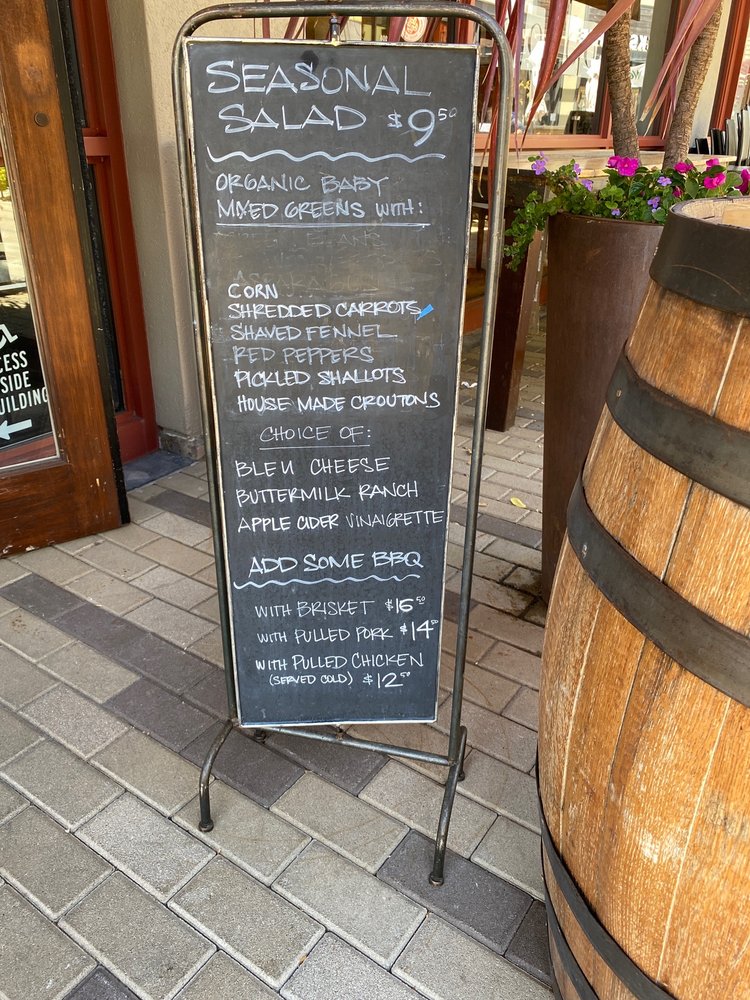 SEASONAL
SALAD $9.50
ORGANIC BABY
MIXED GREENS WITH:
CORN
SHREDDED CARROTS
SHAVED FENNEL
RED PEPPERS
PICKLED SHALLOTS
HOUSE MADE CROUTONS
CHOICE OF:
BLEU CHEESE
BUTTERMILK RANCH
APPLE CIDER VINAIGRETTE
ADD SOME BBQ
WITH BRISKET $16.50
WITH PULLED PORK $14.50
WITH PULLED CHICKEN
(SERVED COLD) $12.50
CESS
SIDE
UILDING